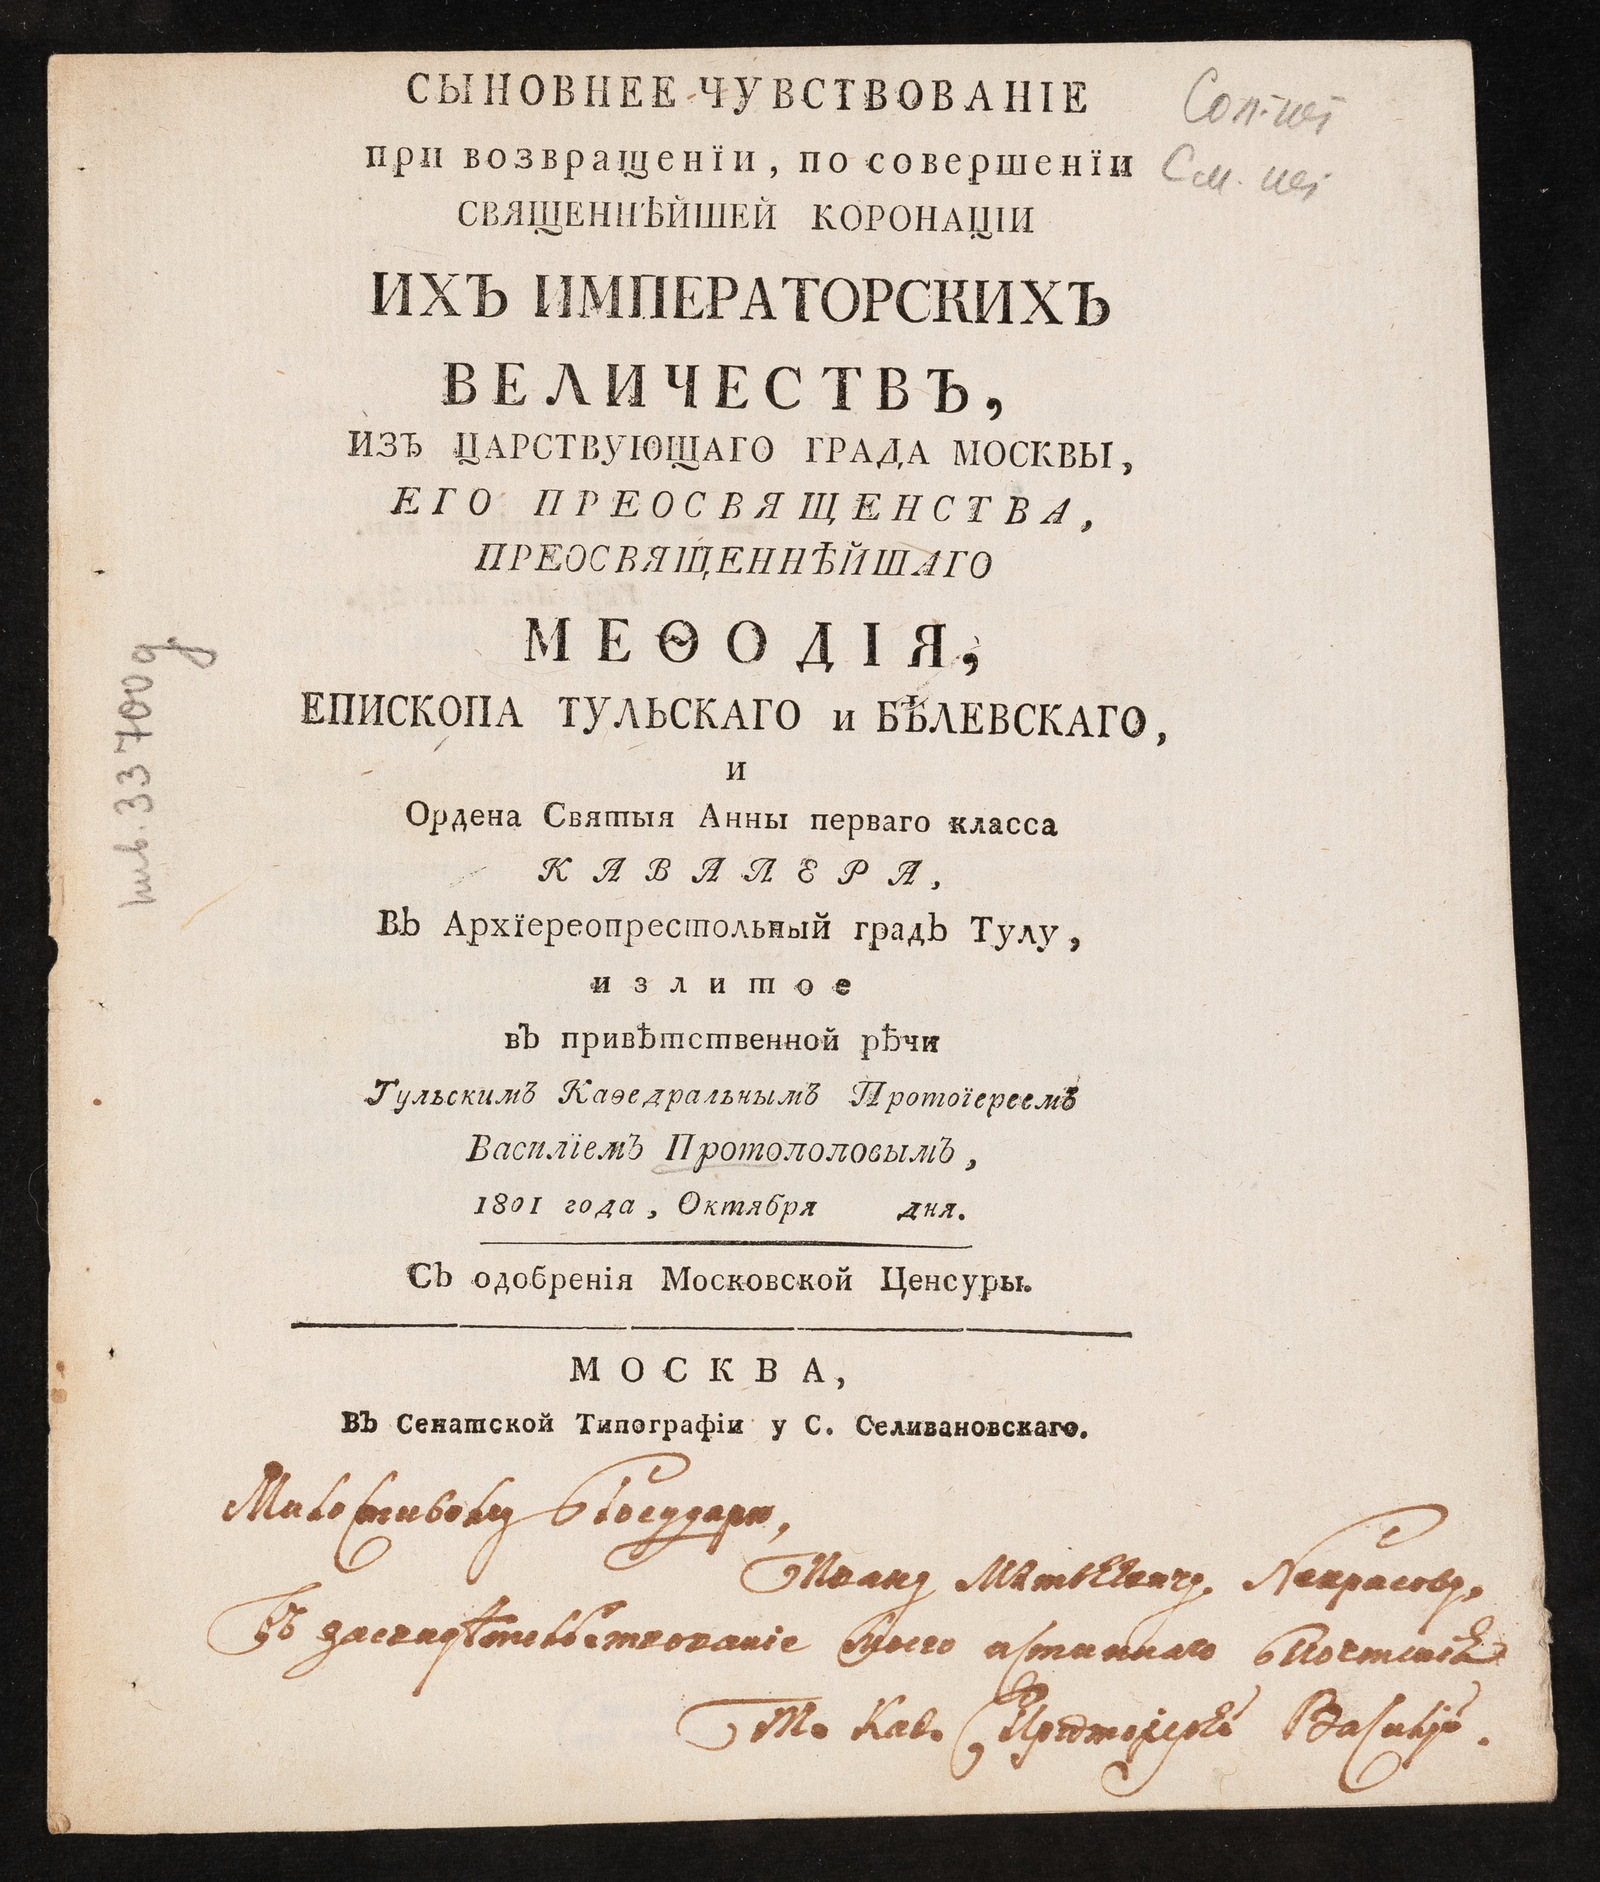 СЫНОВНЕЕ ЧУВСТВОВАНІЕ
при возвращенїи, по совершенїи
СВЯЩЕННѢЙШЕЙ КОРОНАЦІИ
ИХЪ ИМПЕРАТОРСКИХЪ
ВЕЛИЧЕСТВЪ,
ИЗЪ ЦАРСТВУЮЩАГО ГРАДА МОСКВЫ,
ЕГО ПРЕОСВЯЩЕНСТВА,
ПРЕОСВЯЩЕННѢЙШАГО
МЕѲОДІЯ,
ЕПИСКОПА ТУЛЬСКАГО и БѢЛЕВСКАГО,
И
Ордена Святыя Анны перваго класса
КАВАЛЕРА,
Въ Архїереопрестольный градъ Тулу,
излитое
въ привѣтственной рѣчи
Тульскимъ Каѳедральнымъ Протоїереемъ
Василїемъ Протопоповымъ,
1801 года, Октября дня.
Съ одобренія Московской Ценсуры.
МОСКВА,
Въ Сенатской Типографіи у С. Селивановскаго.
Милостивому Государю,
Иванъ Матвѣевичъ Некрасовъ,
Въ засвидѣтельствованіе моего истиннаго почтенія
Т. Каѳ. Протоіерей Василій.
инв. 33700 д